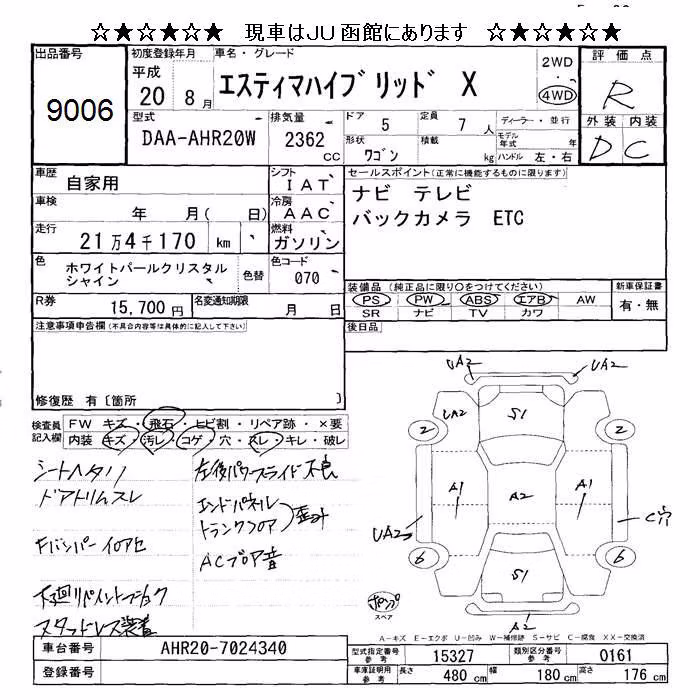 ☆★☆★☆★ 現車はJU函館にあります ☆★☆★☆★
出品番号 9006
初度登録年月 平成 20 8月
車名・グレード エスティマハイブリッド X
2WD ・ 4WD
評価点 R
外装 内装
D C
型式 DAA-AHR20W
排気量 2362 CC
ドア 5
定員 7 人
ディーラー・並行
形状 ワゴン
積載 kg
モデル年式 年
ハンドル 左・右
車歴 自家用
シフト IAT
車検 年 月( 日)
冷房 AAC
走行 21万4千170 km
燃料 ガソリン
色 ホワイトパールクリスタルシャイン
色替
色コード 070
R券 15,700円
名変通知期限 月 日
セールスポイント(正常に機能するものに限ります)
ナビ テレビ
バックカメラ ETC
装備品 (純正品に限り○をつけてください)
PS PW ABS エアB AW
SR ナビ TV カワ
新車保証書 有・無
後日品
注意事項申告欄(不具合内容等は具体的に記入して下さい)
修復歴 有〔箇所 〕
検査員記入欄
FW キズ・飛石・ヒビ割・リペア跡・×要
内装 キズ・汚レ・コゲ・穴・スレ・キレ・破レ
シートヘタリ
ドアトリムスレ
Fバンパーイロアセ
下廻リペイントブラック
スタッドレス装着
左後パワースライド不良
エンドパネル
トランクフロア 歪み
ACブロア音
UA2 UA2
UA2 S1
2 2
A1 A2 A1
UA2 C穴
6 6
S1
ポンプ
スペア
A2
A-キズ E-エクボ U-凹み W-補修跡 S-サビ C-腐食 XX-交換済
車台番号 AHR20-7024340
登録番号
型式指定番号 参考 15327
類別区分番号 参考 0161
車庫証明用 参考 長さ 480 cm 幅 180 cm 高さ 176 cm